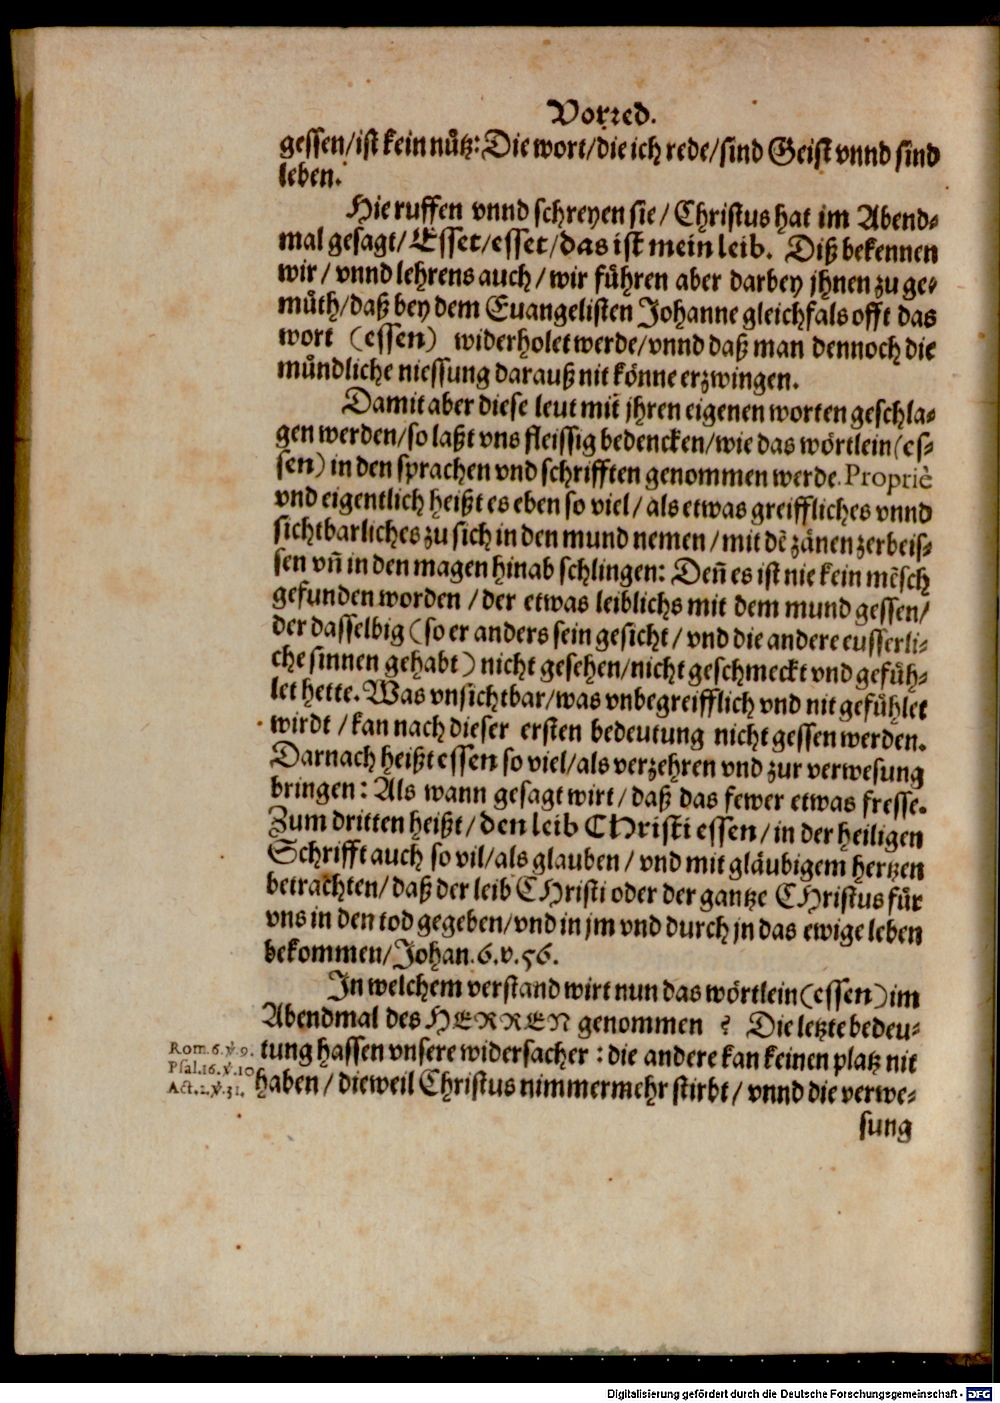 Vorred.
gessen/ist kein nuͤtz: Die wort/die ich rede/sind Geist vnnd sind
leben.
Hie ruffen vnnd schreyen sie/ Christus hat im Abend-
mal gesagt/ Esset/esset/das ist mein leib. Diß bekennen
wir/ vnnd lehrens auch/ wir fuͤhren aber darbey jhnen zu ge-
muͤth/daß bey dem Euangelisten Johanne gleichfals offt das
wort (essen) widerholet werde/vnnd daß man dennoch die
muͤndliche niessung darauß nit koͤnne erzwingen.
Damit aber diese leut mit jhren eigenen worten geschla-
gen werden/so laßt vns fleissig bedencken/wie das woͤrtlein (es-
sen) in den sprachen vnd schrifften genommen werde. Propriè
vnd eigentlich heißt es eben so viel/ als etwas greiffliches vnnd
sichtbarliches zu sich in den mund nemen/mit dẽ zaͤnen zerbeis-
sen vñ in den magen hinab schlingen: Deñ es ist nie kein mẽsch
gefunden worden/der etwas leiblichs mit dem mund gessen/
der dasselbig (so er anders sein gesicht/ vnd die andere eusserli-
che sinnen gehabt) nicht gesehen/nicht geschmeckt vnd gefuͤh-
let hette. Was vnsichtbar/was vnbegreifflich vnd nit gefuͤhlet
wirdt/kan nach dieser ersten bedeutung nicht gessen werden.
Darnach heißt essen so viel/als verzehren vnd zur verwesung
bringen: Als wann gesagt wirt/ daß das fewer etwas fresse.
Zum dritten heißt/ den leib CHristi essen/ in der heiligen
Schrifft auch so vil/als glauben/ vnd mit glaͤubigem hertzen
betrachten/ daß der leib CHristi oder der gantze CHristus fuͤr
vns in den tod gegeben/vnd in jm vnd durch jn das ewige leben
bekommen/Johan. 6. v. 56.
In welchem verstand wirt nun das woͤrtlein (essen) im
Abendmal des HERREN genommen ? Die letzte bedeu-
Rom. 6. ℣. 9. tung hassen vnsere widersacher : die andere kan keinen platz nit
Psal. 16. ℣. 10
Act. 2. ℣. 31. haben/ dieweil Christus nimmermehr stirbt/ vnnd die verwe-
sung
Digitalisierung gefördert durch die Deutsche Forschungsgemeinschaft - DFG